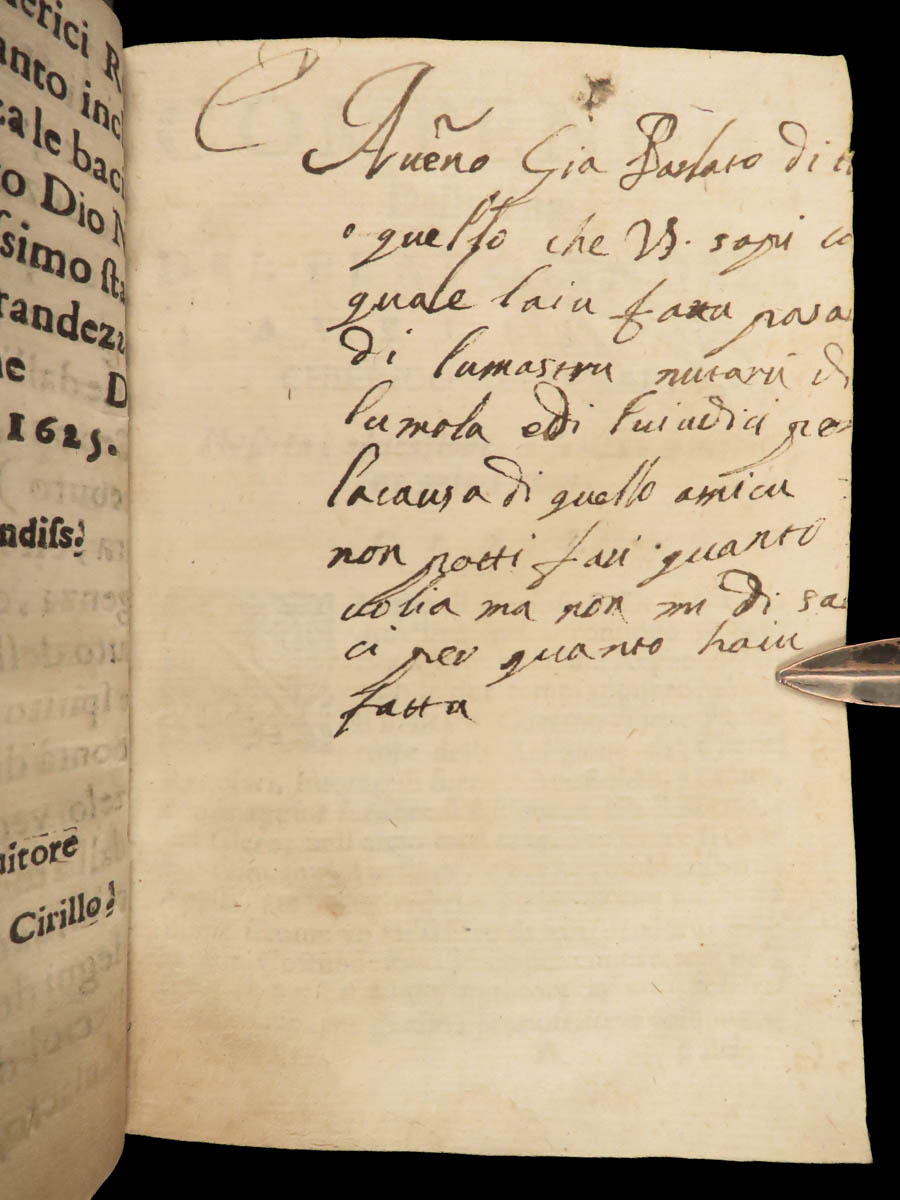 erici R
anto incl
za le baci
o Dio N
ssimo sta
randeza
ne D
1625.
ndiss.
uitore
Cirillo
Aueno Gia Parlato di t
quello che VS. sapi co
quale laiu fattu pasa
di lumastru nutaru di
lumola edi luiudici per
lacausa di quello amicu
non potti fari quanto
uolia ma non mi di sa
ci per quanto haiu
fattu